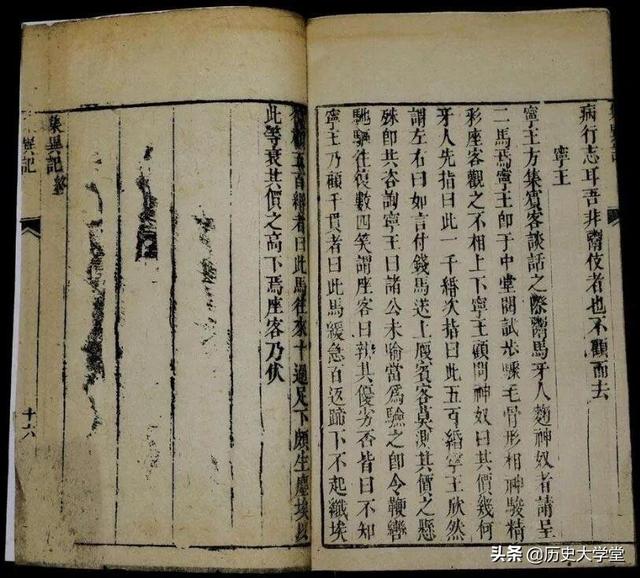 病行志耳吾非鬻伎者也不顧而去
寧王
寧王方集賓客談話之際鬻馬牙人麴神奴者請呈
二馬焉寧王卽于中堂閱試步驟毛骨形相神駿精
彩座客觀之不相上下寧王顧問神奴曰其價幾何
牙人先指曰此一千緡次指曰此五百緡寧王欣然
謂左右曰如言付錢馬送上廐賓客莫測其價之懸
殊卽共咨詢寧王曰諸公未喻當爲驗之卽令鞭轡
馳驅往復數四笑謂座客曰孰其優劣否皆曰不知
寧王乃顧千貫者曰此馬緩急百返蹄下不起纖埃
相五百緡者曰此馬往來十過足下頗生塵埃以
此等衰其價之高下焉座客乃伏
集異記終
異記
十六
头条 @历史大学堂